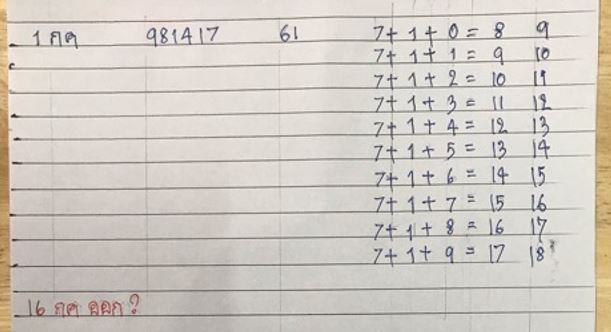 1 กค 981417 61 7+ 1 + 0 = 8 9
7+ 1 + 1 = 9 10
7+ 1 + 2 = 10 11
7+ 1 + 3 = 11 12
7+ 1 + 4 = 12 13
7+ 1 + 5 = 13 14
7+ 1 + 6 = 14 15
7+ 1 + 7 = 15 16
7+ 1 + 8 = 16 17
7+ 1 + 9 = 17 18
16 กค ออก ?